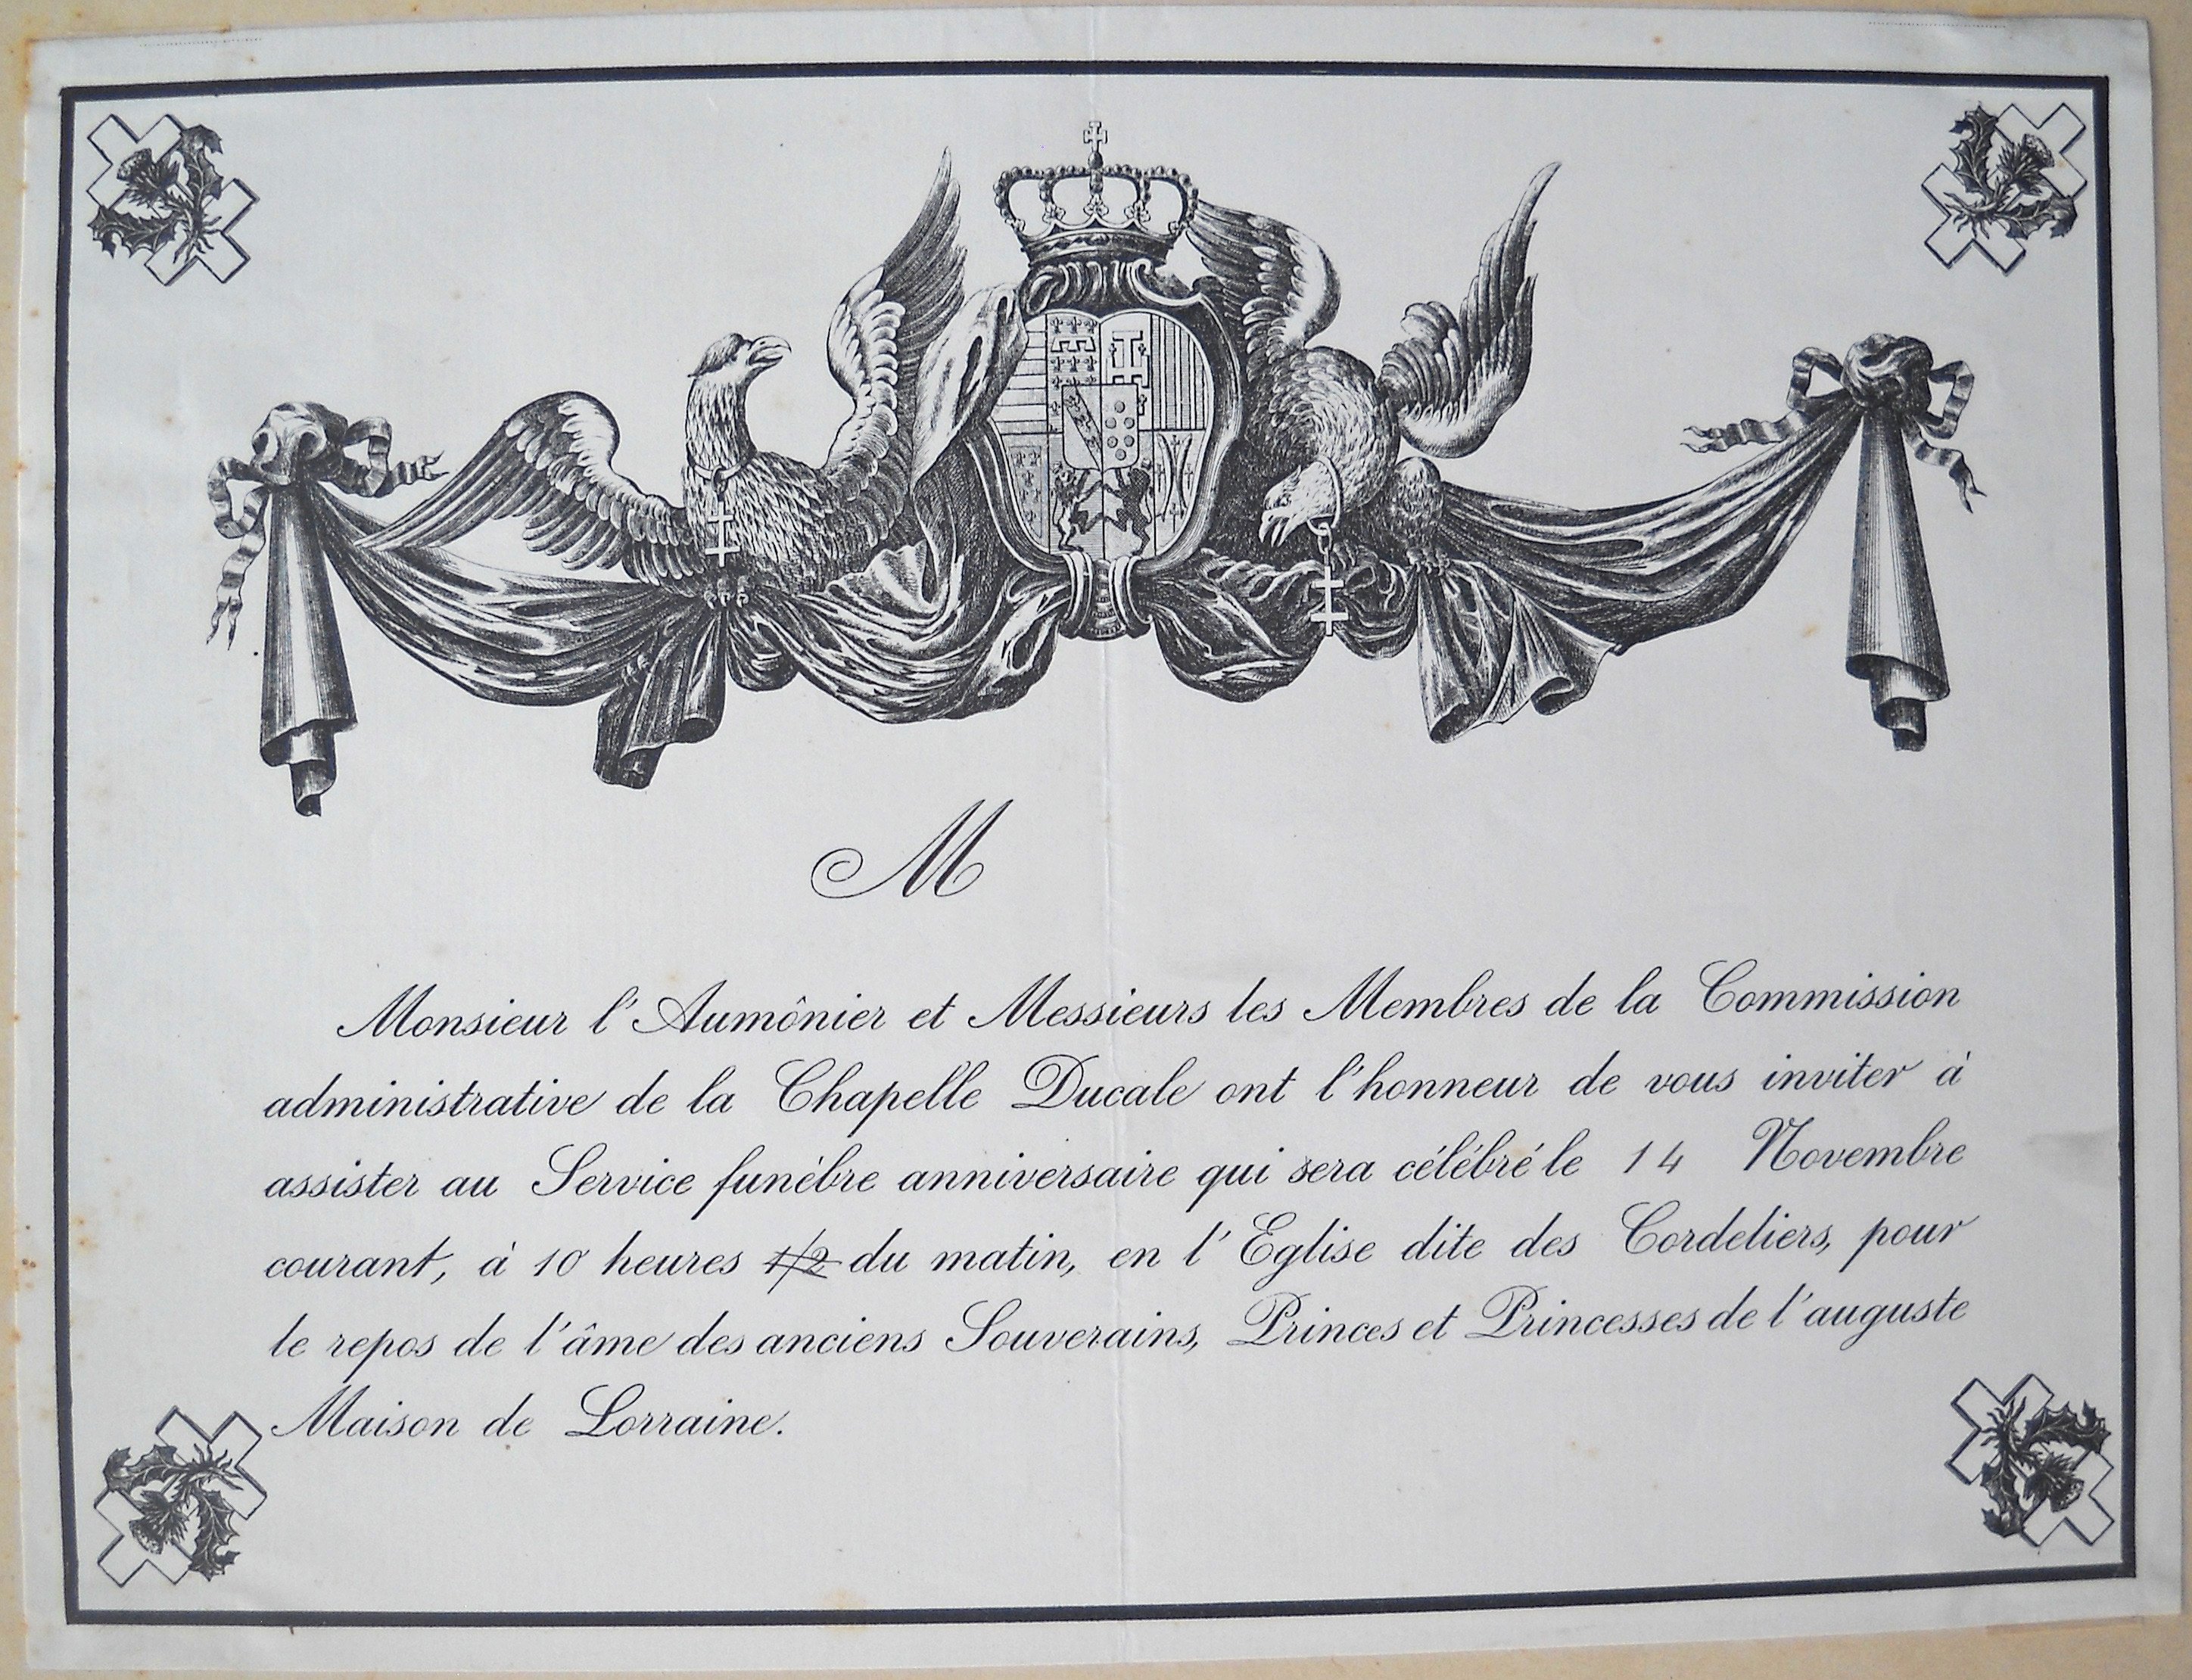 M
Monsieur l'Aumônier et Messieurs les Membres de la Commission
administrative de la Chapelle Ducale ont l'honneur de vous inviter à
assister au Service funèbre anniversaire qui sera célébré le 14 Novembre
courant, à 10 heures 1/2 du matin, en l'Eglise dite des Cordeliers, pour
le repos de l'âme des anciens Souverains, Princes et Princesses de l'auguste
Maison de Lorraine.